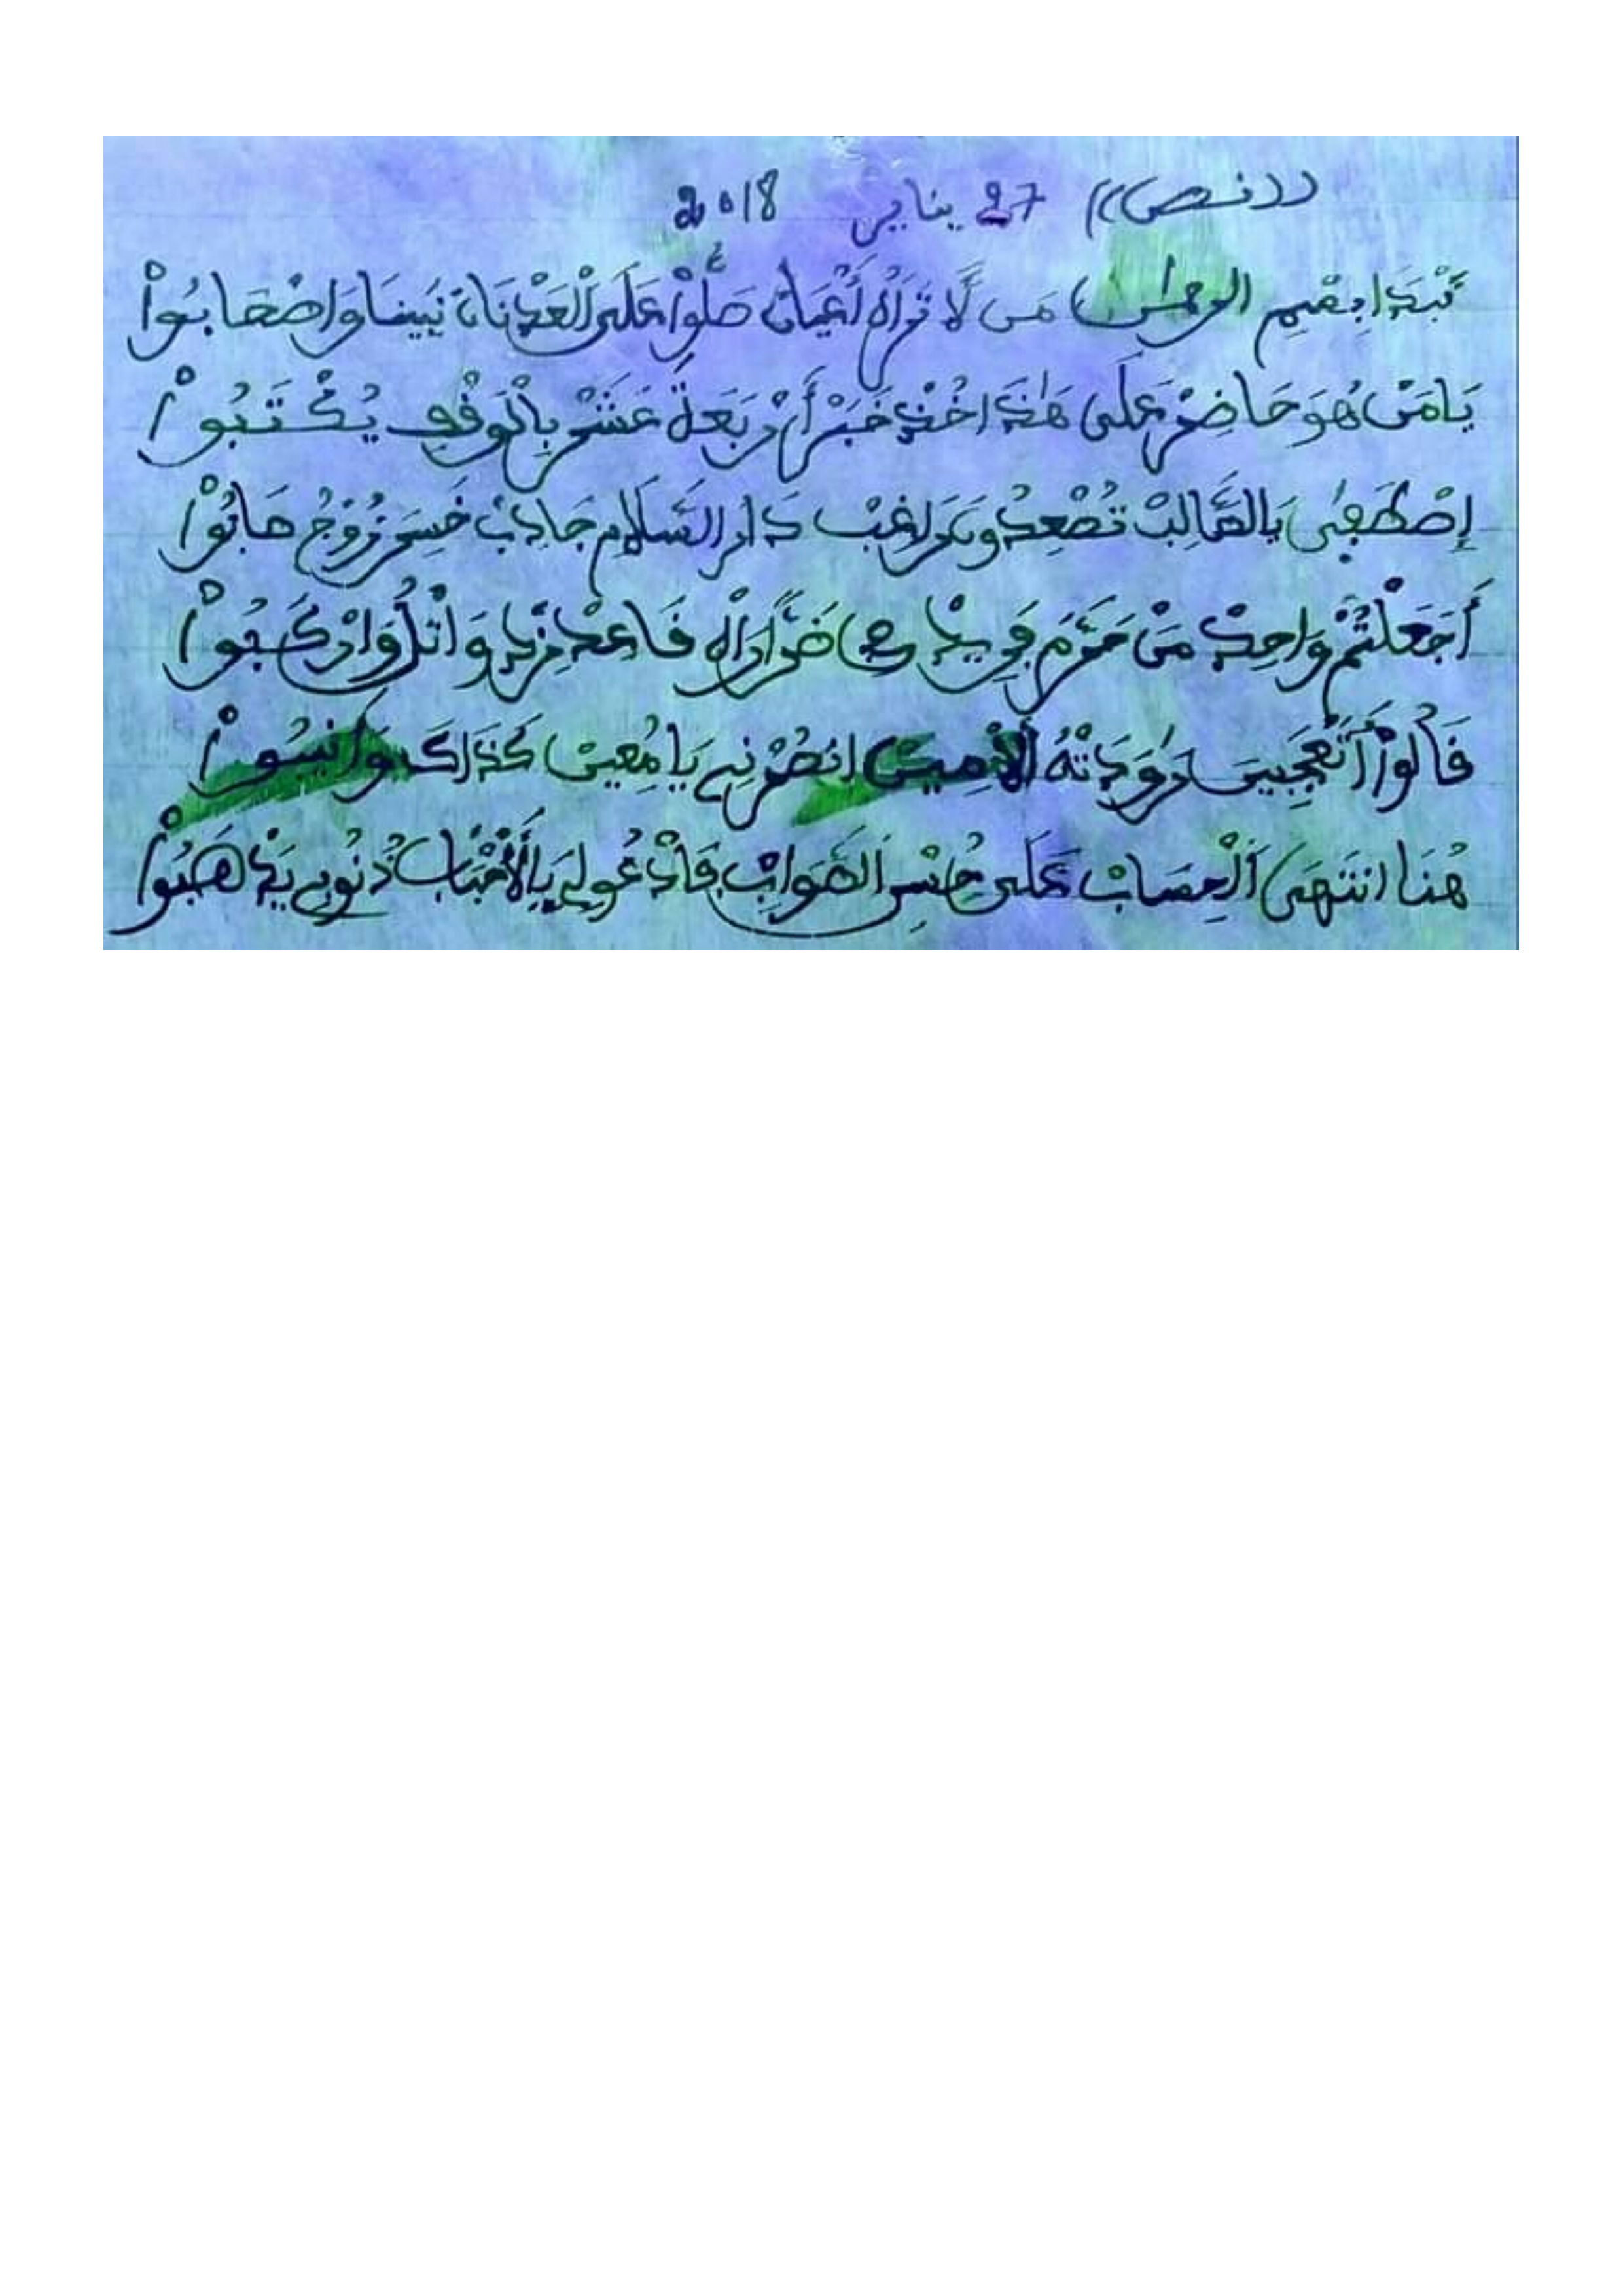 ((نص)) 27 يناير 2018
نَبْدَا بِسْمِ الرحمٰن مَن لَّا تَرَاهُ أَعْيَانْ صَلُّوا عَلَى الْعَدْنَانْ نَبِينَا وَاصْحَابُواْ
يَا مَنْ هُوَ حَاضِرْ عَلَى هَٰذَا خُذْ خَبَرْ أَرْبَعَةْ عَشَرْ بِالْوَقْفِ يُكْتَبُواْ
إِصْطَفِى يَا الطَّالِبْ تُصْعِدُ وَيَرْغَبْ دَار السَّلَام جَادِبْ خَسِرَ زُوجْ هَابُواْ
أَجَعَلْتُمْ وَاحِدْ مَنْ حَرَّمَ فَرِيدْ ضَرَّارَاْ فَاعْدْ زِدْ وَاتْلُ وَارْكَبُواْ
قَالُواْ أَتَعْجَبِينَ رَٰوَدتُّهُ الَامِينْ انصُرْنِي يَا مُعِينْ كَذَاكَ وَانِيبُواْ
هُنَا انتَهَى الْحِسَابْ عَلَى حُسْنِ الصَّوَابْ فَادْعُو لِي يَا الْأَحْبَابْ ذُنُوبِي يَذْهَبُواْ